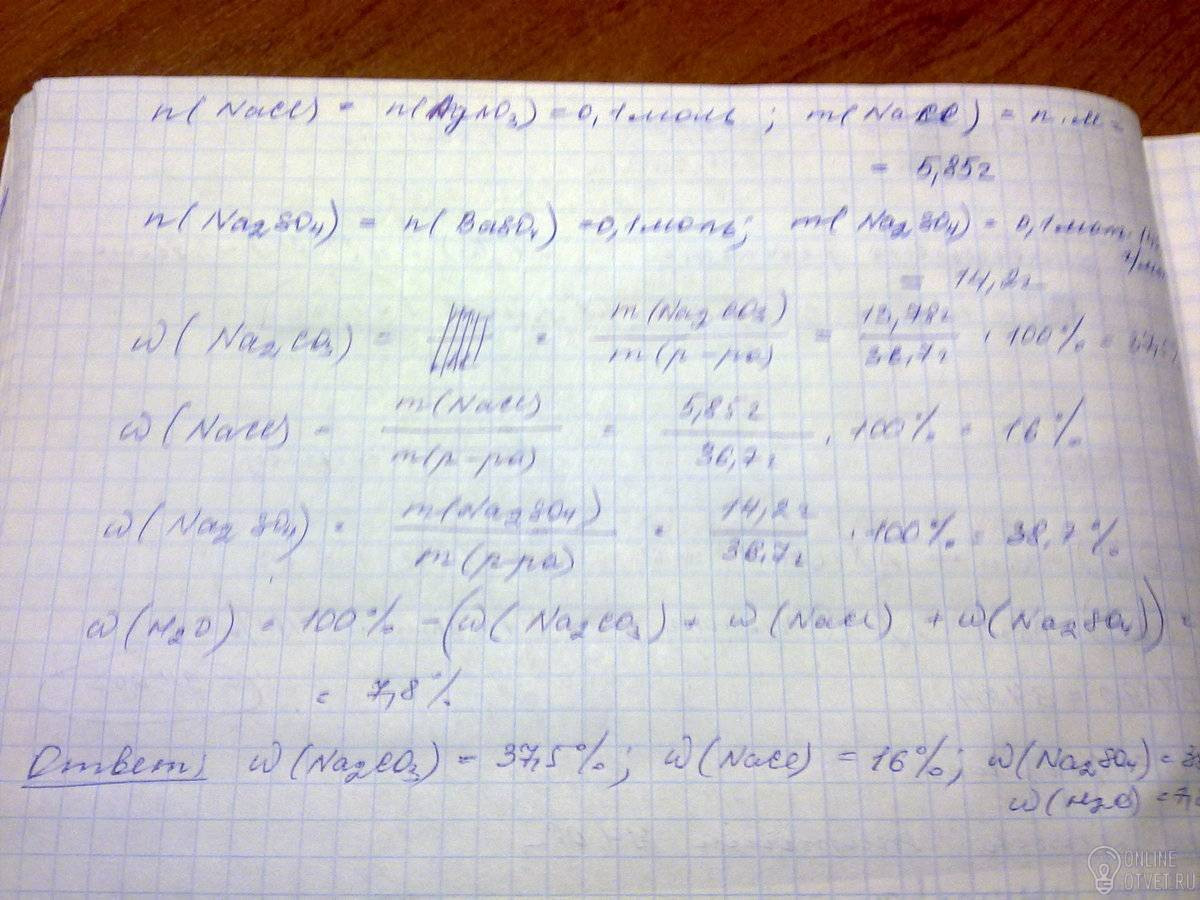 n(NaCl) = n(AgNO₃) = 0,1 моль ; m(NaCl) = n·M =
= 5,85г
n(Na₂SO₄) = n(BaSO₄) = 0,1 моль; m(Na₂SO₄) = 0,1 моль·
= 14,2г
ω(Na₂CO₃) = = m(Na₂CO₃)/m(р-ра) = 13,78г/36,7г · 100% =
ω(NaCl) = m(NaCl)/m(р-ра) = 5,85г/36,7г · 100% = 16%
ω(Na₂SO₄) = m(Na₂SO₄)/m(р-ра) = 14,2г/36,7г · 100% = 38,7%
ω(H₂O) = 100% - (ω(Na₂CO₃) + ω(NaCl) + ω(Na₂SO₄)) =
= 7,8%
Ответ: ω(Na₂CO₃) = 37,5%; ω(NaCl) = 16%; ω(Na₂SO₄) =
ω(H₂O) =
ONLINE
OTVET.RU